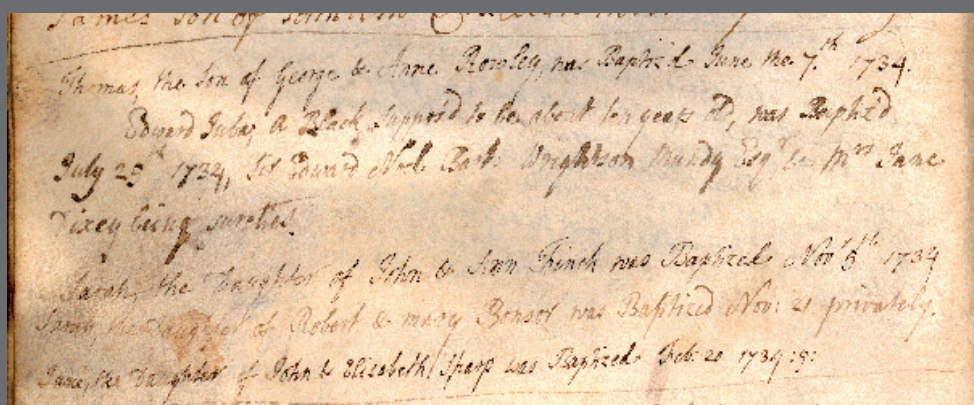 James Son of
Thomas, the Son of George & Anne Rowley, was Baptized June the 7.th 1734.
Edward Juba, a Black, suppos'd to be about ten years old, was Baptiz'd
July 25th 1734, Sir Edward Bart: Wrightson Mundy Esqr & Mrs Jane
Dixey being sureties.
Sarah, the Daughter of John & Ann Finch was Baptized Novr 5th 1734
Sarah, the Daughter of Robert & Mary Bonsor was Baptized Nov: 21 privately.
Jane, the Daughter of John & Elizabeth Sharp was Baptized Feb: 20 1734:5: